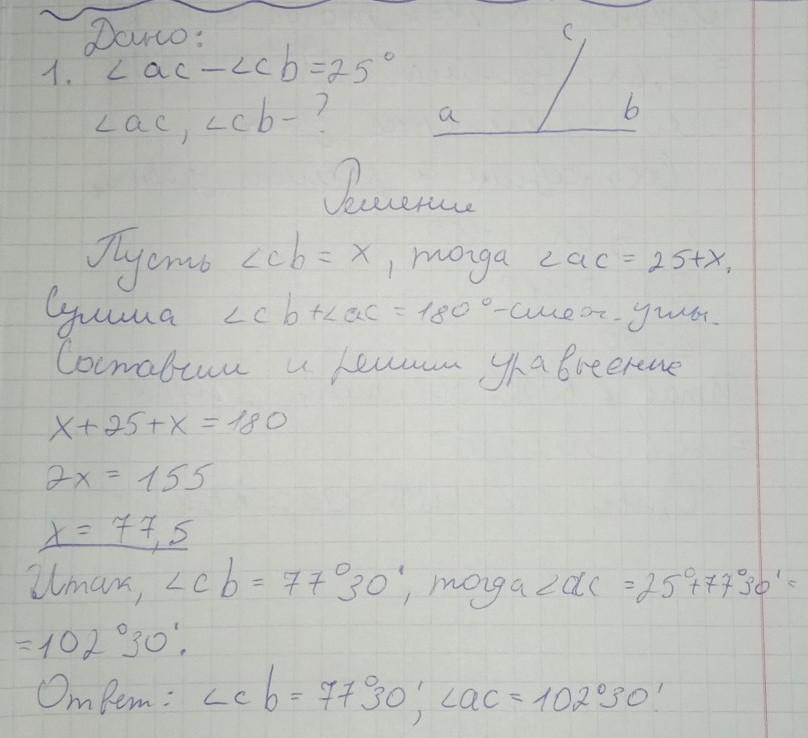 Дано:
1. ∠ac – ∠cb = 25°
∠ac, ∠cb – ?
c
a b
Решение
Пусть ∠cb = x, тогда ∠ac = 25+x.
Сумма ∠cb+∠ac = 180° – смеж. углы.
Составим и решим уравнение
x+25+x = 180
2x = 155
x = 77,5
Итак, ∠cb = 77°30', тогда ∠ac = 25°+77°30' =
= 102°30'.
Ответ: ∠cb = 77°30', ∠ac = 102°30'